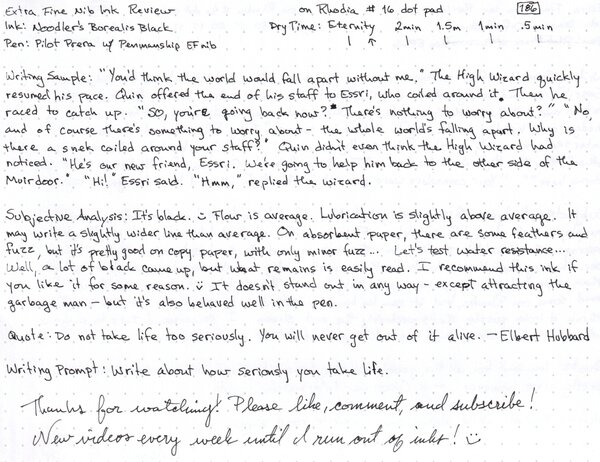 Extra Fine Nib Ink Review on Rhodia #16 dot pad 186
Ink: Noodler's Borealis Black Dry Time: Eternity 2min 1.5m 1min .5min
Pen: Pilot Prera w/ Penmanship EF nib
Writing Sample: "You'd think the world would fall apart without me." The High Wizard quickly
resumed his pace. Quin offered the end of his staff to Essri, who coiled around it. Then he
raced to catch up. "So, you're going back now? There's nothing to worry about?" "No,
and of course there's something to worry about - the whole world's falling apart. Why is
there a snek coiled around your staff?" Quin didn't even think the High Wizard had
noticed. "He's our new friend, Essri. We're going to help him back to the other side of the
Muirdoor." "Hi!" Essri said. "Hmm," replied the wizard.
Subjective Analysis: It's black. :) Flow is average. Lubrication is slightly above average. It
may write a slightly wider line than average. On absorbent paper, there are some feathers and
fuzz, but it's pretty good on copy paper, with only minor fuzz... Let's test water resistance...
Well, a lot of black came up, but what remains is easily read. I recommend this ink if
you like it for some reason. :) It doesn't stand out in any way - except attracting the
garbage man - but it's also behaved well in the pen.
Quote: Do not take life too seriously. You will never get out of it alive. - Elbert Hubbard
Writing Prompt: Write about how seriously you take life.
Thanks for watching! Please like, comment, and subscribe!
New videos every week until I run out of inks! :)